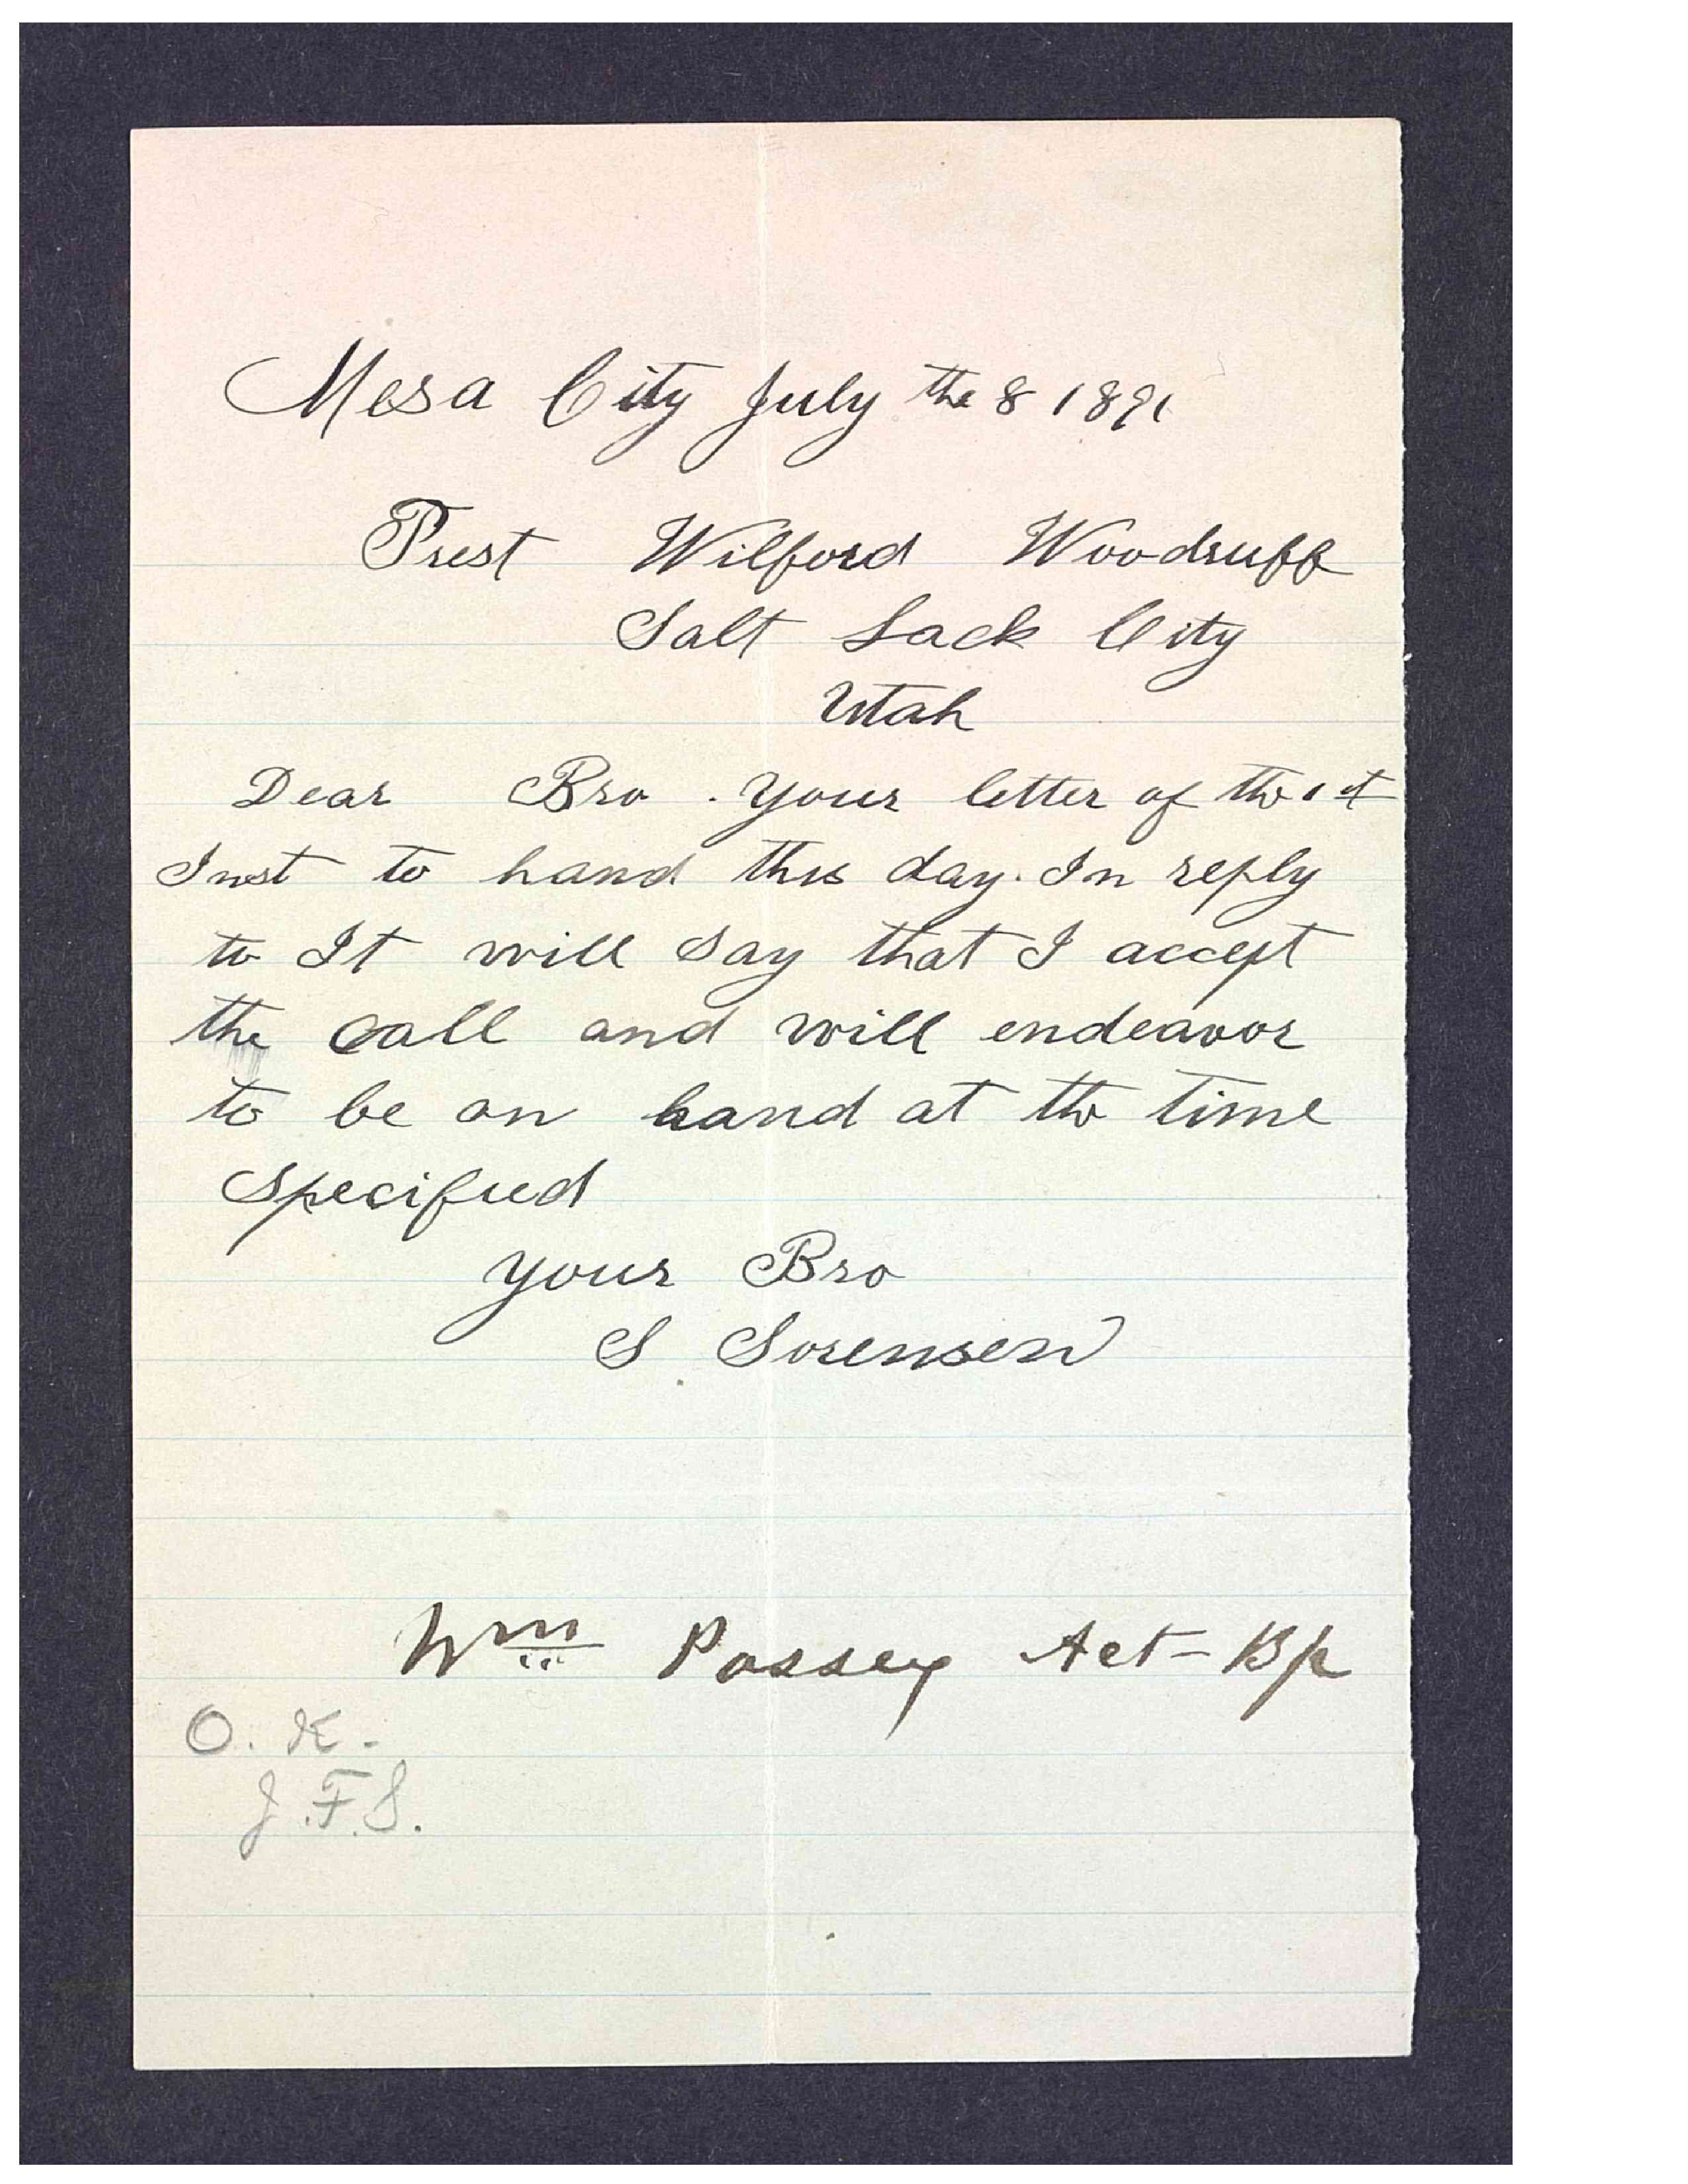 Mesa City July the 8 1891
Prest Wilford Woodruff
Salt Lack City
Utah
Dear Bro. Your letter of the 1st
Inst to hand this day. In reply
to It will say that I accept
the call and will endeavor
to be on hand at the time
specified
Your Bro
S Sorensen
Wm Passey Act-Bp
O. K.
J. F. S.